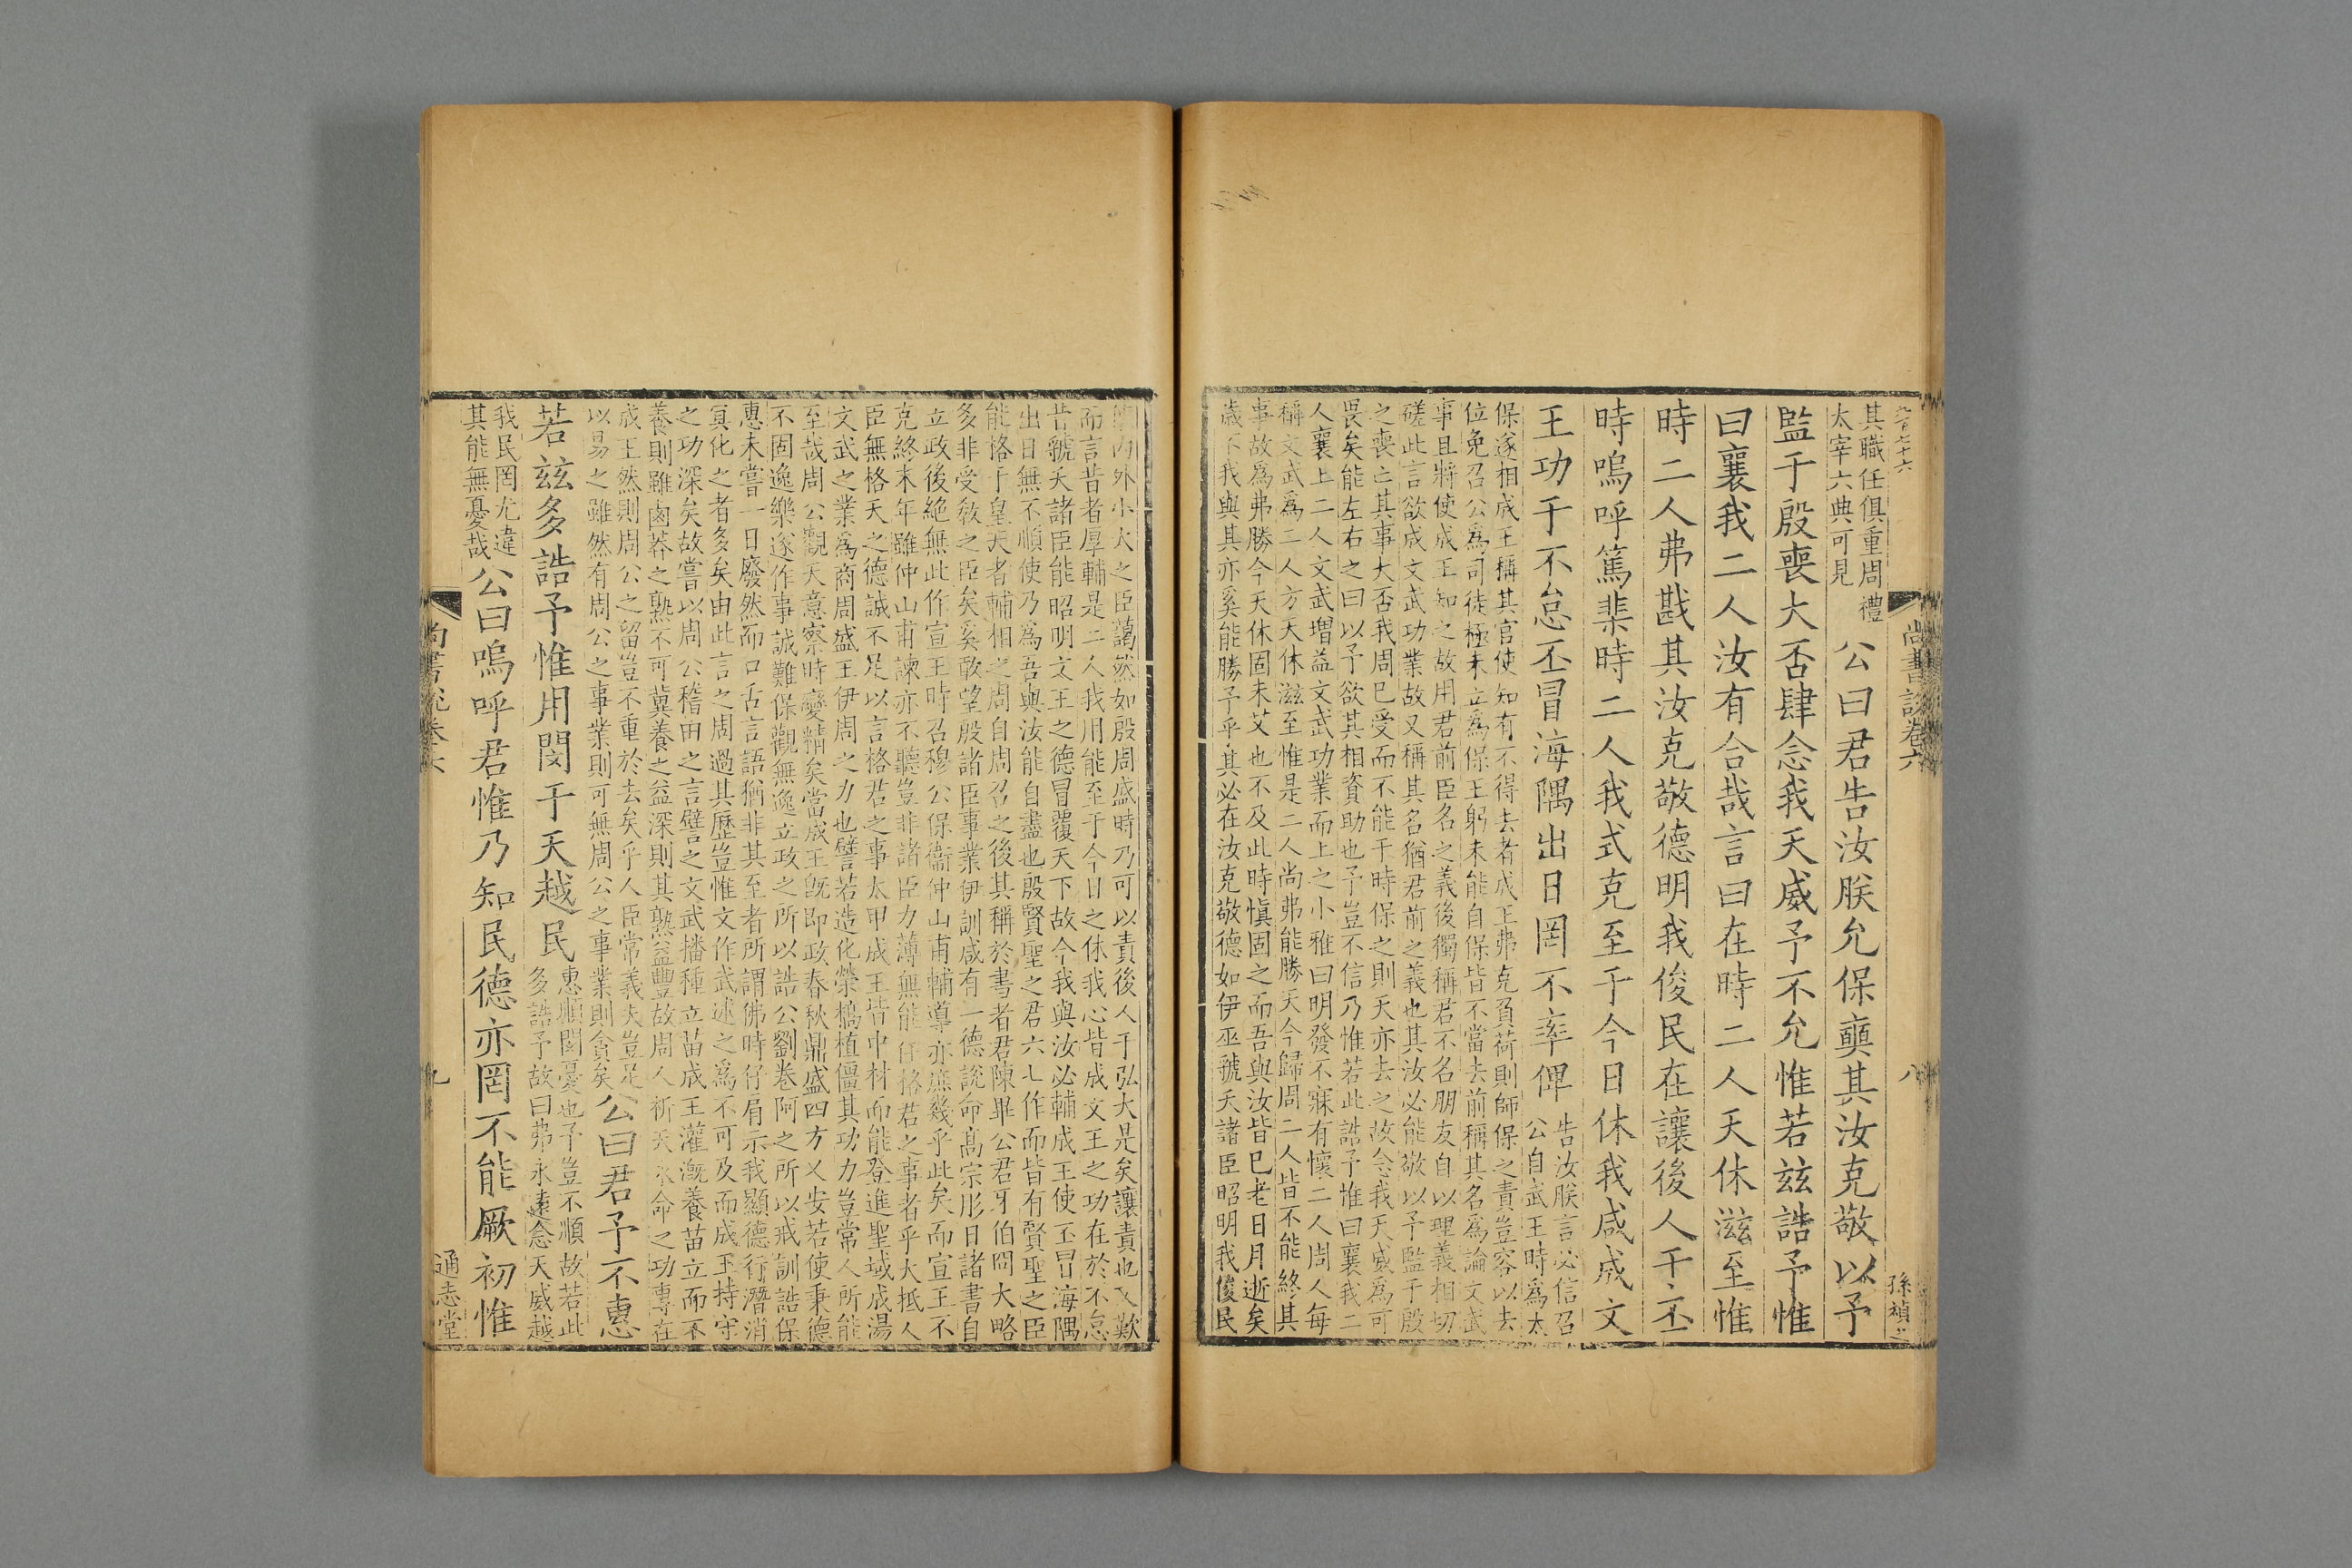 其職任俱重周禮
太宰六典可見
公曰君告汝朕允保奭其汝克敬以予
監于殷喪大否肆念我天威予不允惟若兹誥予惟
曰襄我二人汝有合哉言曰在時二人天休滋至惟
時二人弗戡其汝克敬德明我俊民在讓後人于丕
時嗚呼篤棐時二人我式克至于今日休我咸成文
王功于不怠丕冒海隅出日罔不率俾
告汝朕言必信召
公自武王時爲太
保遂相成王稱其官使知有不得去者成王弗克負荷則師保之責豈容以去
位免召公爲司徒極未立爲保王躬未能自保皆不當去前稱其名爲論文武
事且將使成王知之故用君前臣名之義後獨稱君不名朋友自以理義相切
磋此言欲成文武功業故又稱其名猶君前之義也其汝必能敬以予監于殷
之喪亡其事大否我周已受而不能于時保之則天亦去之故念我天威爲可
畏矣能左右之曰以予欲其相資助也予豈不信乃惟若此誥予惟曰襄我二
人襄上二人文武増益文武功業而上之小雅曰明發不寐有懷二人周人每
稱文武爲二人方天休滋至惟是二人尚弗能勝天今歸周二人皆不能終其
事故爲弗勝今天休固未艾也不及此時愼固之而吾與汝皆已老日月逝矣
歲不我與其亦奚能勝予乎其必在汝克敬德如伊巫虢夭諸臣昭明我俊民
尚書說卷六
八
内外小大之臣藹然如殷周盛時乃可以責後人于弘大是矣讓責也又歎
而言昔者厚輔是二人我用能至于今日之休我心皆成文王之功在於不怠
昔虢夭諸臣能昭明文王之德冒覆天下故今我與汝必輔成王使丕冒海隅
出日無不順使乃爲吾與汝能自盡也殷賢聖之君六七作而皆有賢聖之臣
能格于皇天者輔相之周自周召之後其稱於書者君陳畢公君牙伯冏大略
多非受敎之臣矣奚敢望殷諸臣事業伊訓咸有一德說命髙宗肜日諸書自
立政後絶無此作宣王時召穆公保衞仲山甫輔導亦庶幾乎此矣而宣王不
克終末年雖仲山甫諫亦不聽豈非諸臣力薄無能仔格君之事者乎大抵人
臣無格天之德誠不足以言格君之事太甲成王皆中材而能登進聖域成湯
文武之業爲商周盛王伊周之力也譬若造化榮槁植僵其功力豈常人所能
至哉周公觀天意察時變精矣當成王旣即政春秋鼎盛四方乂安若使秉德
不固逸樂遂作事誠難保觀無逸立政之所以誥公劉卷阿之所以戒訓誥保
惠未嘗一日廢然而口舌言語猶非其至者所謂佛時仔肩示我顯德行潛消
冥化之者多矣由此言之周過其歷豈惟文作武述之爲不可及而成王持守
之功深矣故嘗以周公稽田之言譬之文武播種立苗成王灌漑養苗立而不
養則雖鹵莽之熟不可冀養之益深則其熟益豐故周人祈天永命之功專在
成王然則周公之留豈不重於去矣乎人臣常義夫豈足
以易之雖然有周公之事業則可無周公之事業則貪矣
公曰君予不惠
若兹多誥予惟用閔于天越民
惠順閔憂也予豈不順故若此
多誥予故曰弗永遠念天威越
我民罔尤違
其能無憂哉
公曰嗚呼君惟乃知民德亦罔不能厥初惟
尚書說卷六
九
通志堂